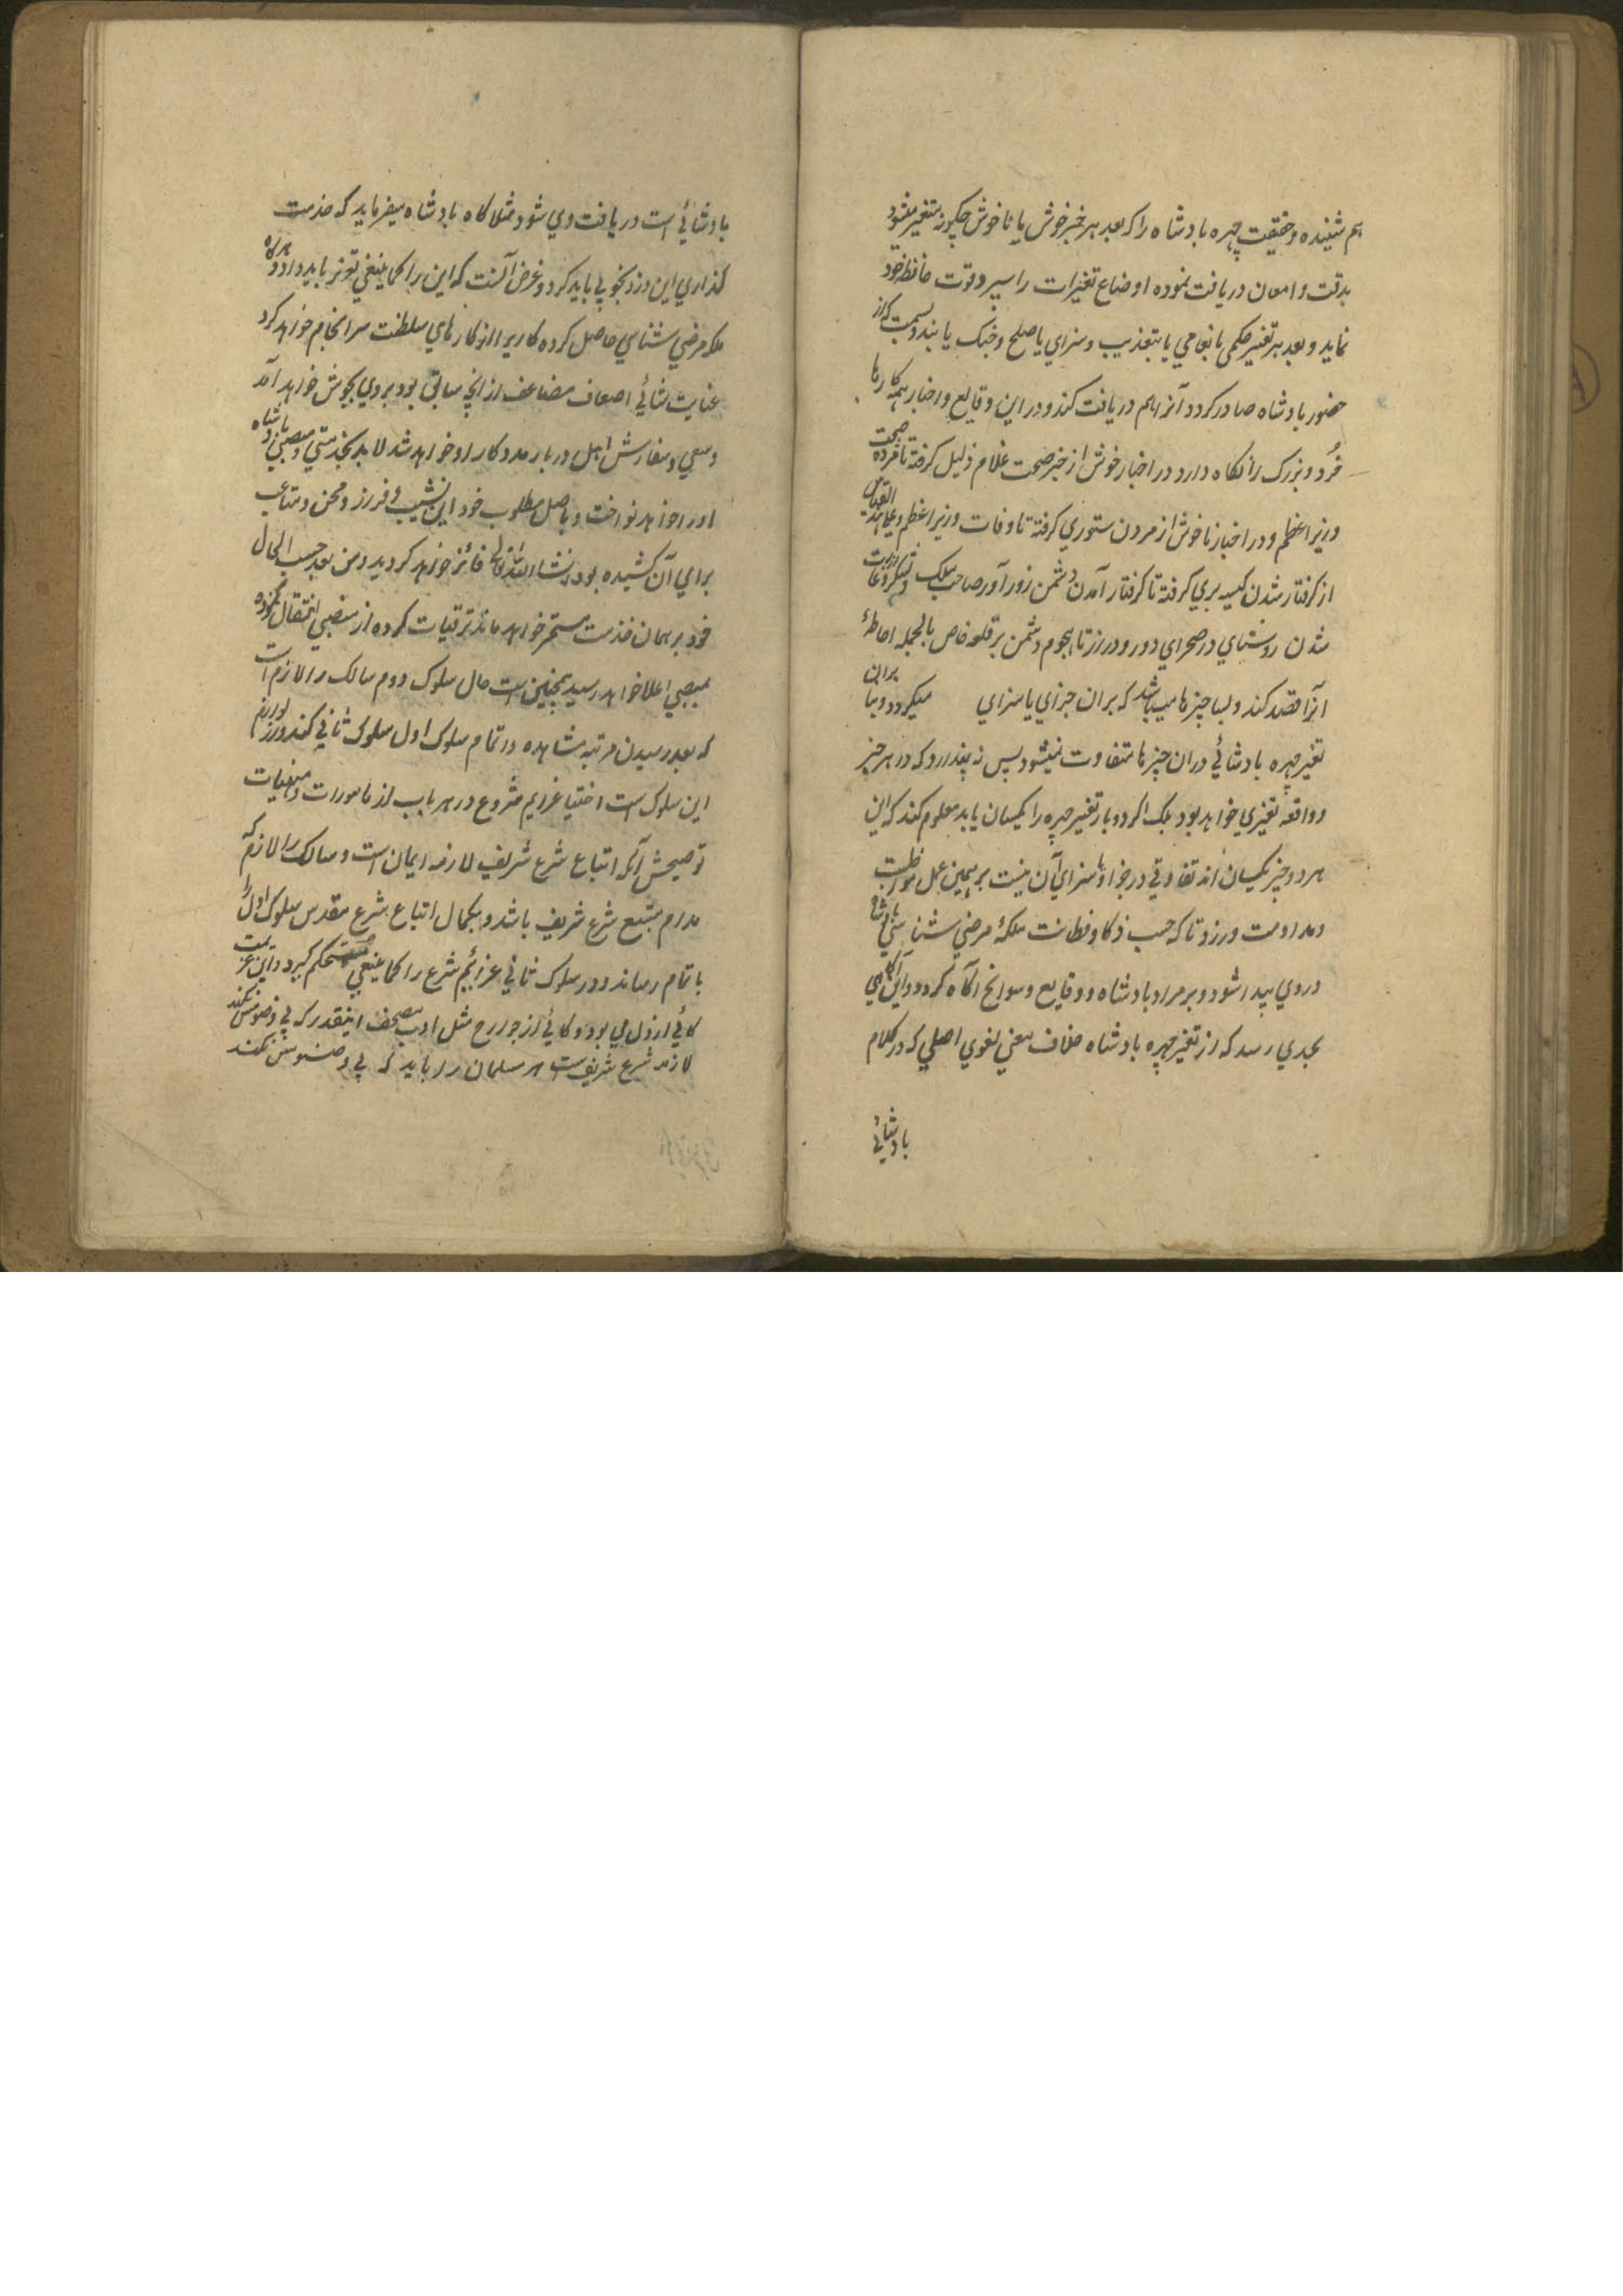 هم شنیده و حقیقت چهره بادشاه را که بعد هر خبر خوش یا ناخوش چگونه متغیر میشود
بدقت و امعان دریافت نموده اوضاع تغیرات را سپرد قوت حافظه خود
نماید و بعد هر تغیر حکمی بانعامی یا بتعذیب و سزای یا صلح و جنک یا بند و بست که از
حضور بادشاه صادر کردد آنرا هم دریافت کند و در این وقایع و اخبار همه کارها
خُرد و بزرک را نکاه دارد در اخبار خوش از خبر صحت غلام ذلیل کرفته تا مژده صحت
وزیر اعظم و در اخبار ناخوش از مردن ستوری کرفته تا وفات وزیر اعظم و علی هذا القیاس
از کرفتار شدن کیسه بری کرفته تا کرفتار آمدن دشمن زور آور صاحب ملک و لشکر و از غارت
شدن روستای در صحرای دور و دراز تا هجوم دشمن بر قلعه خاص بالجمله احاطهٔ
آنرا قصد کند و بسا چیزها میباشد که بران جزای یا سزای میکردد و بسا بران
تغیر چهره بادشائی دران چیزها متفاوت نمیشود پس نه پندارد که در هر چیز
و واقعه تغیری خواهد بود بلک اکر دو بار تغیر چهره را یکسان یابد معلوم کند که این
هر دو چیز یکسان اند تفاوتی در جزا و یا سزای آن نیست بر همین عمل مواظبت
و مداومت ورزد تا که حسب ذکا و فطانت ملکهٔ مرضی شناسی بادشاه
در وی پیدا شود و بر مراد بادشاه و وقایع و سوانح آکاه کردد و این آکاهی
بحدی رسد که از تغیر چهره بادشاه خلاف معنی لغوی اصلی که در کلام
بادشائی
بادشائی است دریافت وی شود مثلا کاه بادشاه میفرماید که خدمت
کذاری این دزد بخوبی باید کرد و غرض آنست که این را کما ینبغی تعزیر باید داد و هرکاه
ملکه مرضی شناسی حاصل کرده کاریرا از کارهای سلطنت سرانجام خواهد کرد
عنایت شائی اضعاف مضاعف از انچه سابق بود بروی بجوش خواهد آمد
و سعی و سفارش اهل دربار مددکار او خواهد شد لابد بخدمتی و منصبی بادشاه
اورا خواهد نواخت و باصل مطلوب خود این نشیب و فراز و محن و متاعب
برای آن کشیده بود انشاء الله تعالی فائز خواهد کردید و من بعد حسب الحال
خود بر همان خدمت مستمر خواهد ماند یا ترقیات کرده از منصبی انتقال نموده
بمنصبی اعلا خواهد رسید همچنین است حال سلوک دوم سالک را لازم است
که بعد رسیدن مرتبه مشاهده و اتمام سلوک اول سلوک ثانی کند و لوازم
این سلوک است اختیار عزایم مشروع در هر باب از مامورات و منهیات
توضیحش آنکه اتباع شرع شریف لازمه ایمان است و سالک را لازم که
مدام متبع شرع شریف باشد و بکمال اتباع شرع مقدس سلوک اول را
باتمام رساند و در سلوک ثانی عزائم شرع را کما ینبغی مستحکم کیرد و این عزیمت
کاهی از دل می بود و کاهی از جوارح مثل ادب مصحف اینقدر که بی وضو مس نکند
لازمه شرع شریف است هر مسلمان را باید که بی وضو مس نکند